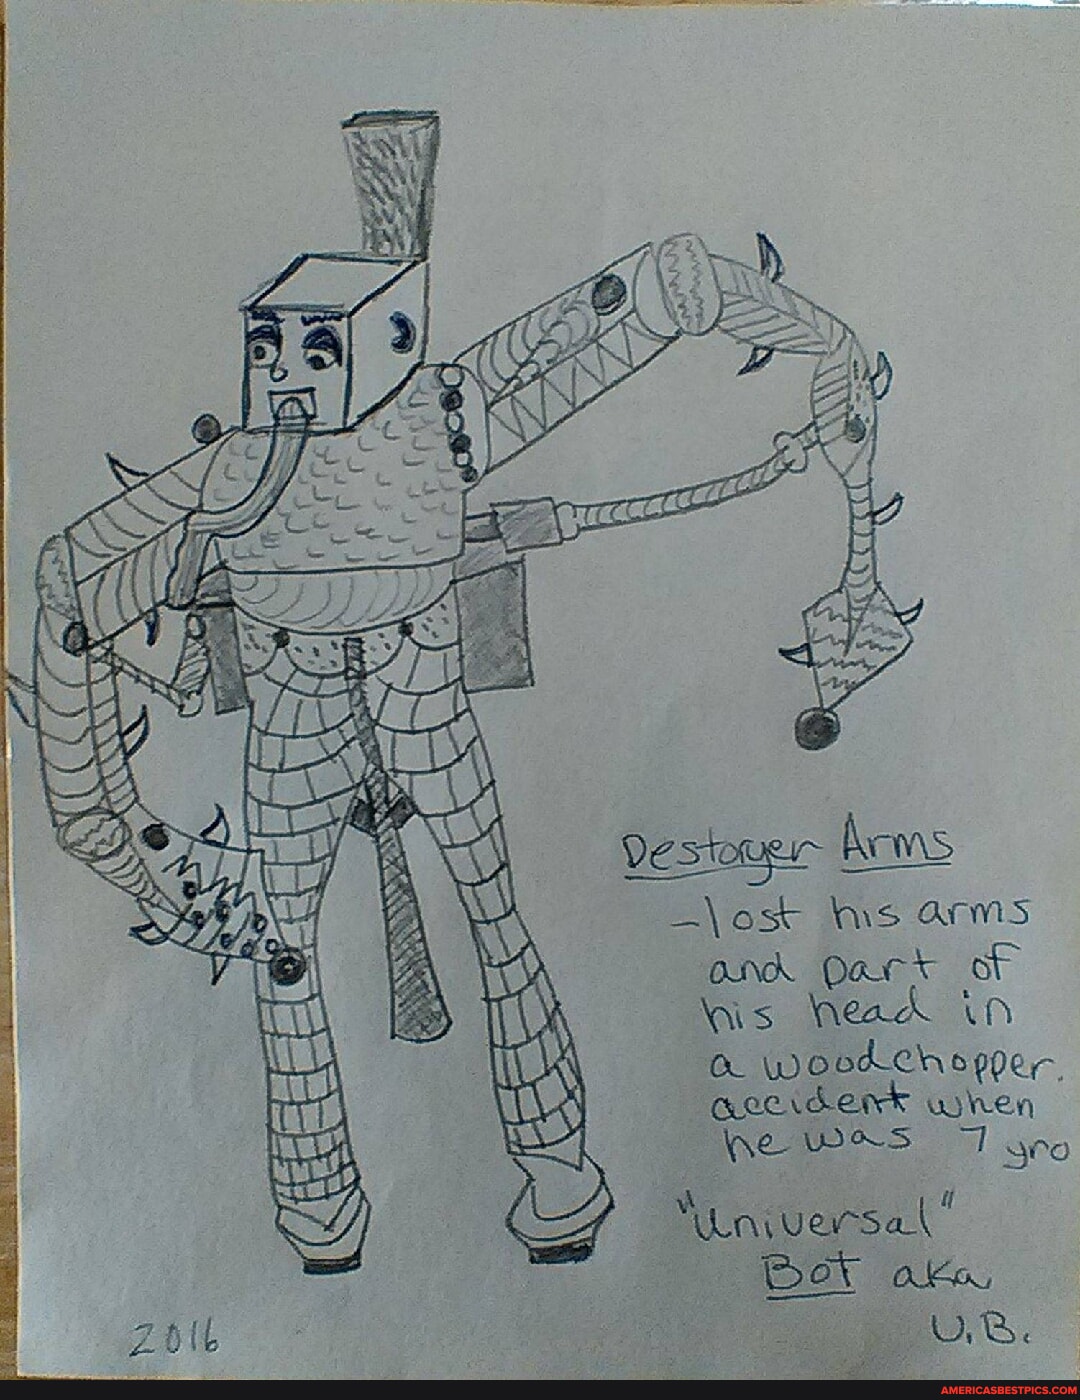 Destoryer Arms
-lost his arms
and part of
his head in
a woodchopper.
accident when
he was 7 yro
"Universal"
Bot aka
U.B.
2016
AMERICASBESTPICS.COM